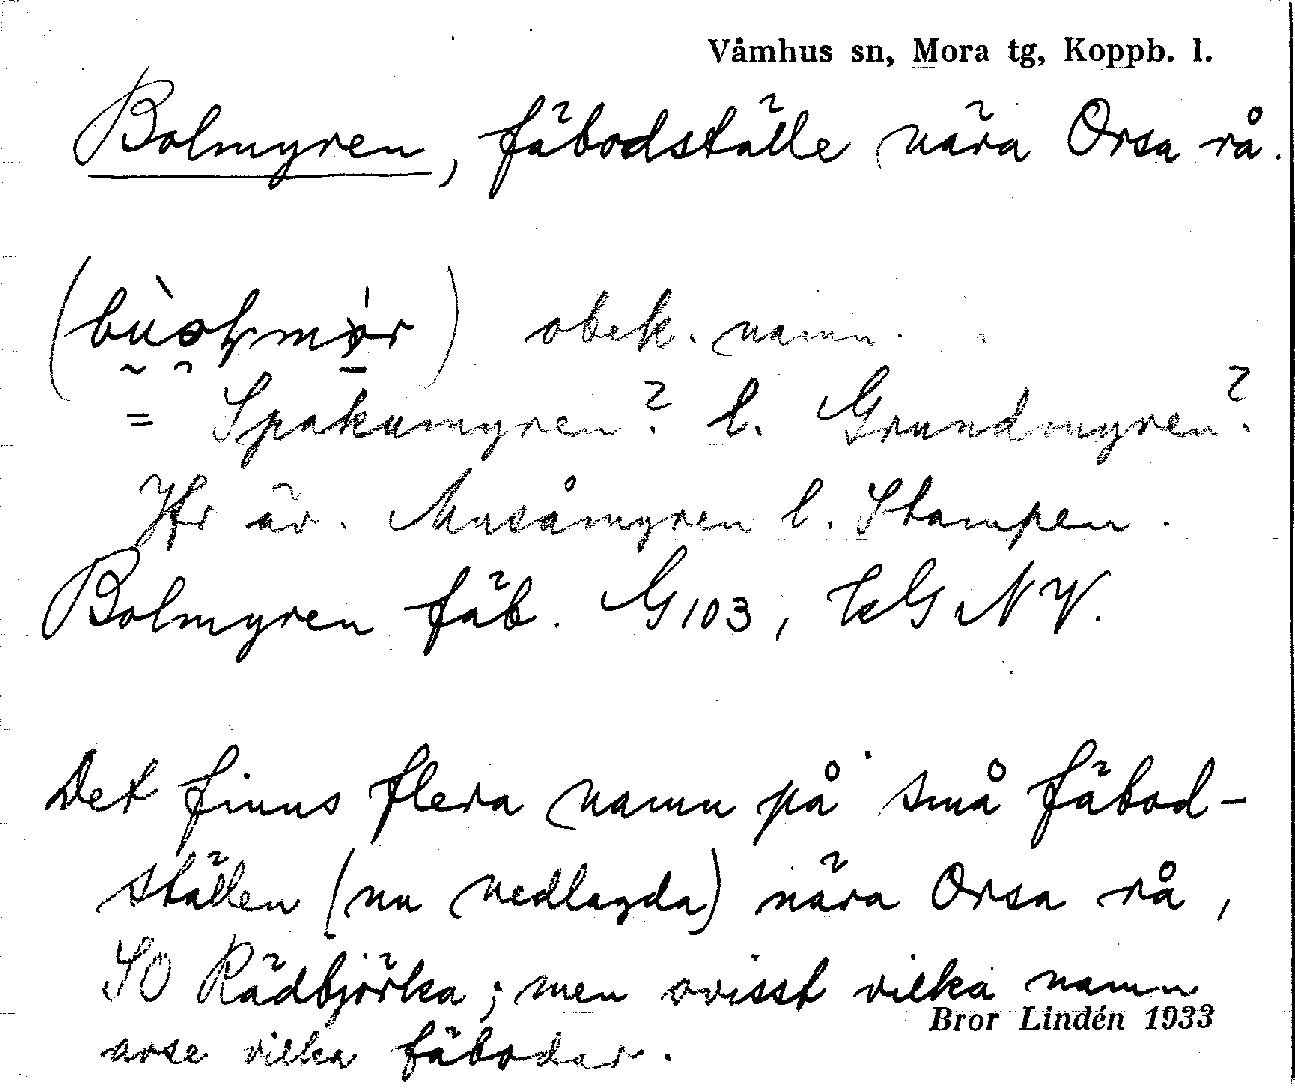 Våmhus sn, Mora tg, Koppb. l.
Bolmyren, fäbodställe nära Orsa rå.
obek. namn.
= Spakamyren? l. Grundmyren?
Jfr äv. Musåmyren l. Stampen.
Bolmyren fäb. G103, EkG NV.
Det finns flera namn på små fäbod-
ställen (nu nedlagda) nära Orsa rå,
SO Rädbjörka; men ovisst vilka namn
avse vilka fäbodar.
Bror Lindén 1933